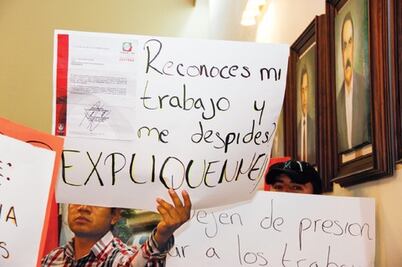 Reconoces mi
trabajo y
me despides?
EXPLIQUENME!
E:
IA
S
ejen de presion
ar a los traba